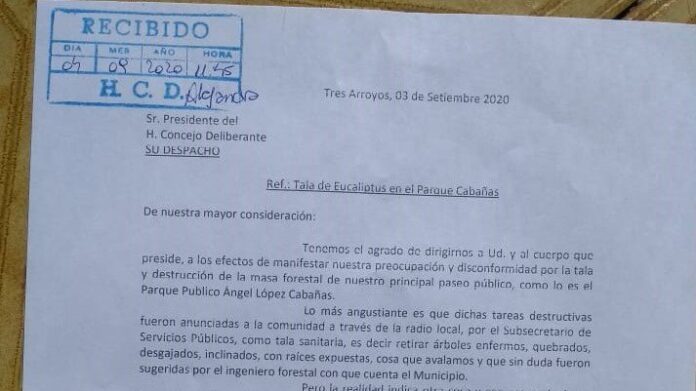 RECIBIDO
DIA MES AÑO HORA
04 09 2020 11:45
H. C. D. Alejandra
Tres Arroyos, 03 de Setiembre 2020
Sr. Presidente del
H. Concejo Deliberante
SU DESPACHO
Ref.: Tala de Eucaliptus en el Parque Cabañas
De nuestra mayor consideración:
Tenemos el agrado de dirigirnos a Ud. y al cuerpo que
preside, a los efectos de manifestar nuestra preocupación y disconformidad por la tala
y destrucción de la masa forestal de nuestro principal paseo público, como lo es el
Parque Publico Ángel López Cabañas.
Lo más angustiante es que dichas tareas destructivas
fueron anunciadas a la comunidad a través de la radio local, por el Subsecretario de
Servicios Públicos, como tala sanitaria, es decir retirar árboles enfermos, quebrados,
desgajados, inclinados, con raíces expuestas, cosa que avalamos y que sin duda fueron
sugeridas por el ingeniero forestal con que cuenta el Municipio.
Pero la realidad indica otra cosa